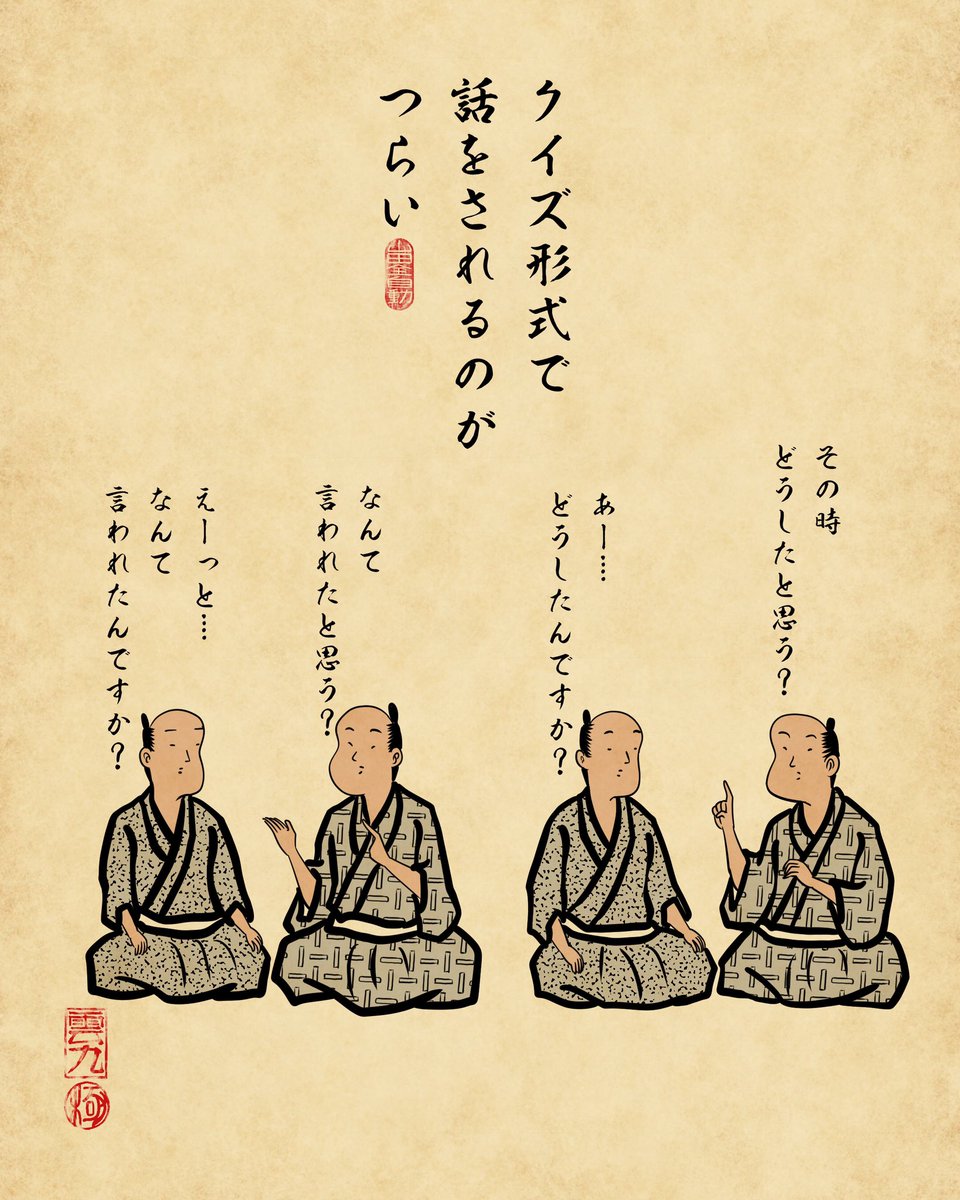 クイズ形式で
話をされるのが
つらい
その時
どうしたと思う?
あー‥‥
どうしたんですか?
なんて
言われたと思う?
えーっと‥‥
なんて
言われたんですか?